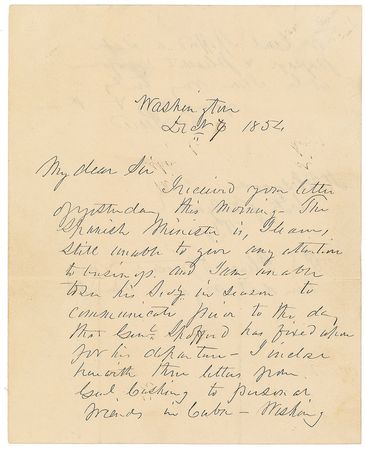 Washington
Dec 1854
My dear Sir
I received your letter
of yesterday this morning - The
Spanish Minister is, I learn,
still unable to give any attention
to business. and I am unable
to see his in season to
communicate prior to the day
that Genl. Spofford has fixed upon
for his departure - I inclose
herewith three letters from
Genl Cushing to personal
friends in Cuba - Wishing